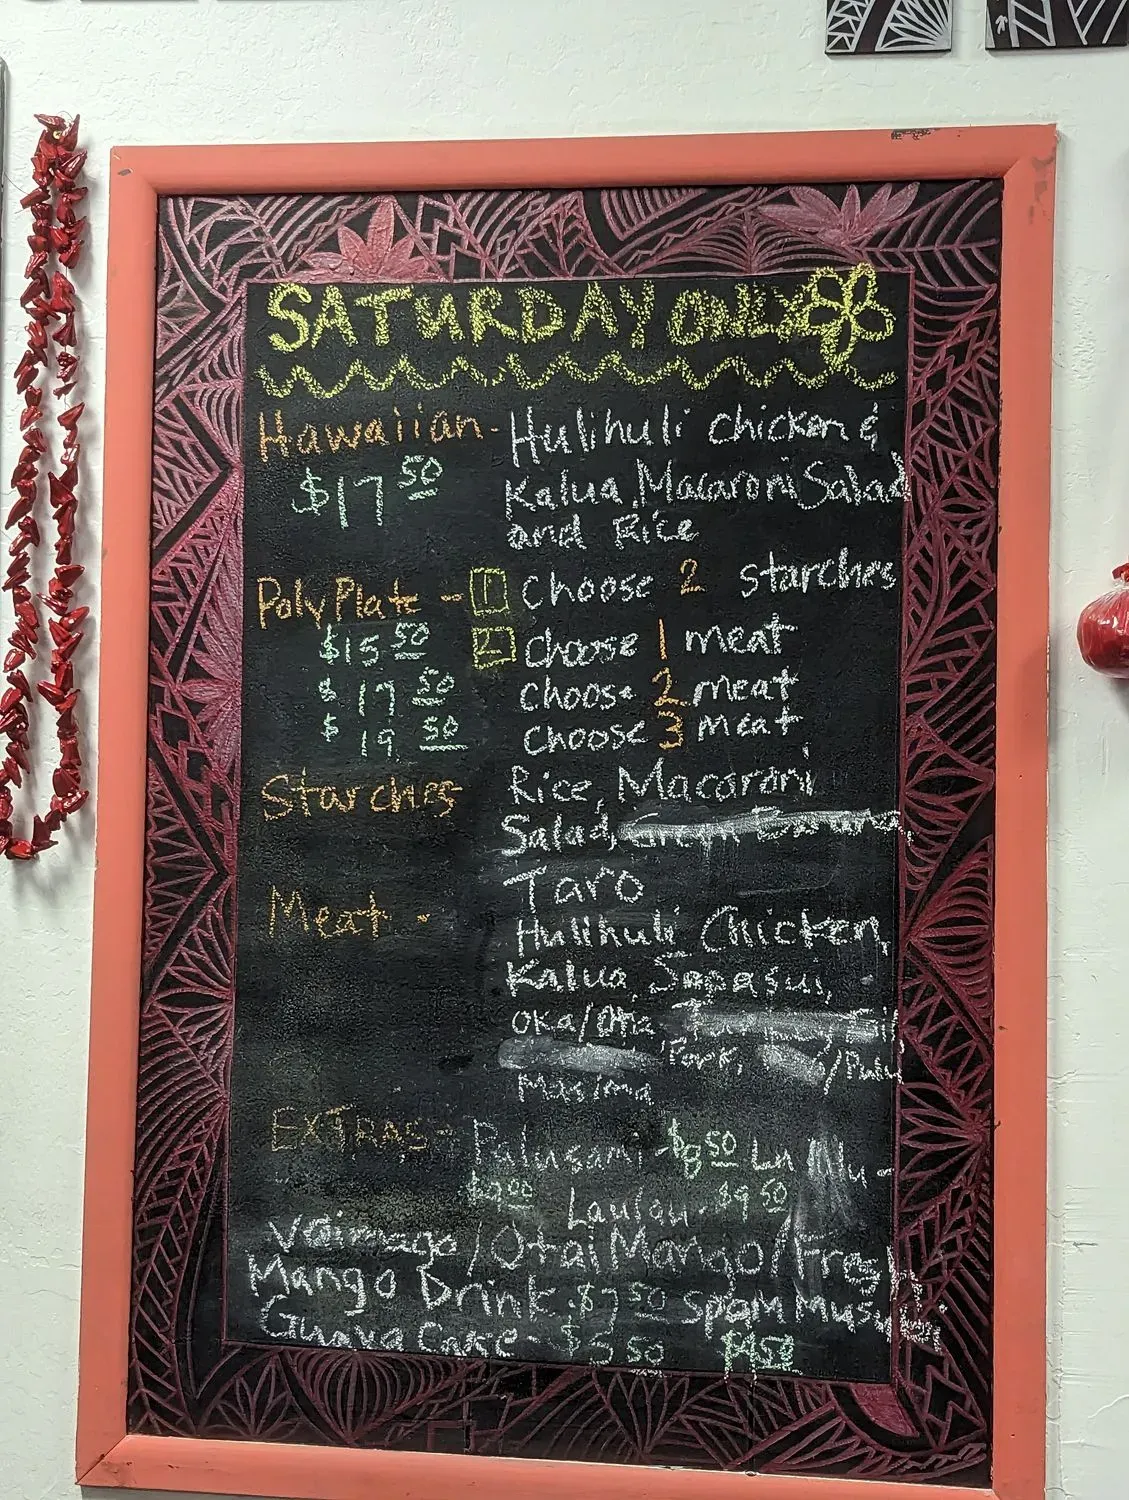 SATURDAY ONLY
Hawaiian - Hulihuli chicken &
$17 50 Kalua, Macaroni Salad
and Rice
Poly Plate - 1 Choose 2 starches
$15 50 2 Choose 1 meat
$17 50 Choose 2 meat
$19 50 Choose 3 meat
Starches Rice, Macaroni
Salad,
Taro
Meat - Hulihuli Chicken,
Kalua, Sapasui,
Oka/Ota
Pork, /Pulu
Masima
EXTRAS - Palusami - $8 50 Lu
Laulau - $9 50
Vaimago/Otai Mango/Fresh
Mango Drink - $7 50 Spam Musubi
Guava Cake - $5 50 $4 50